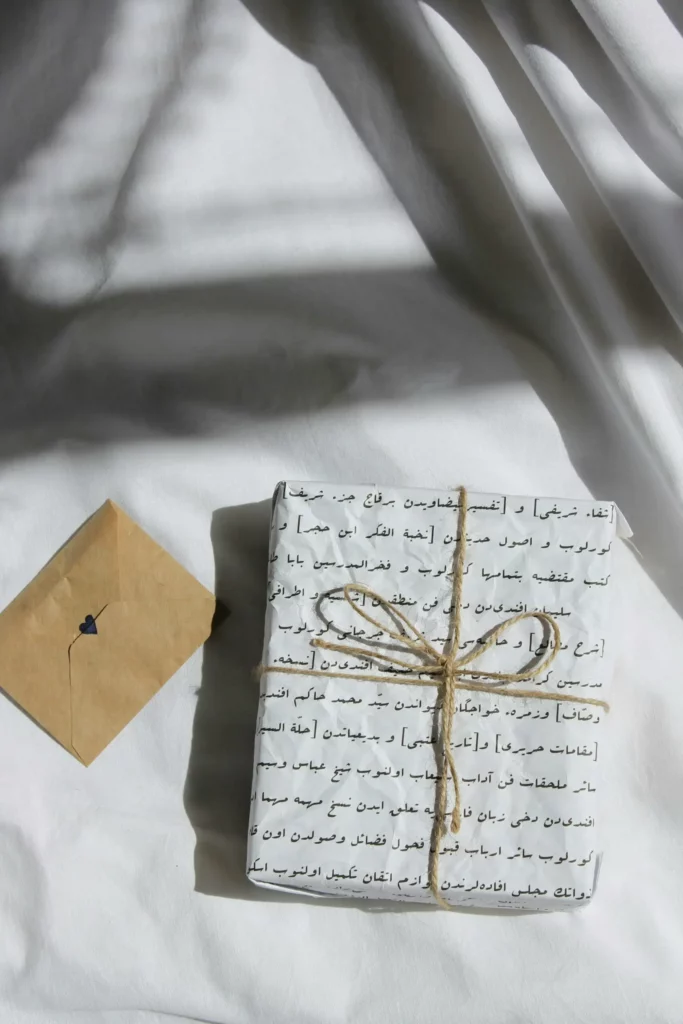 [شفاء شريفى] و [تفسير بيضاويدن برقاج جزء شريف]
كورلوب و اصول حديثدن [نخبة الفكر ابن حجر] و
كتب مقتضيه بتمامها كورلوب و فخرالمدرسين بابا
سليمان افندى‌دن دخى فن منطقدن و اطرافى
[شرح] و جرجانى كورلوب
مدرسين افندى‌دن [نسخهٔ
وصّاف] وزمرهٔ خواجگان ديواندن سيّد محمد حاكم
[مقامات حريرى] و[تاريخ عتبى] و بديعياتدن [حلّة
سائر ملحقات فن آداب اولنوب شيخ عباس وسيم
افندى‌دن دخى زبان تعلق ايدن نسخ مهمه مهما
كورلوب سائر ارباب قبول فحول فضائل وصولدن اون
ذواتك مجلس افاده‌لرندن لوازم اتقان تكميل اولنوب